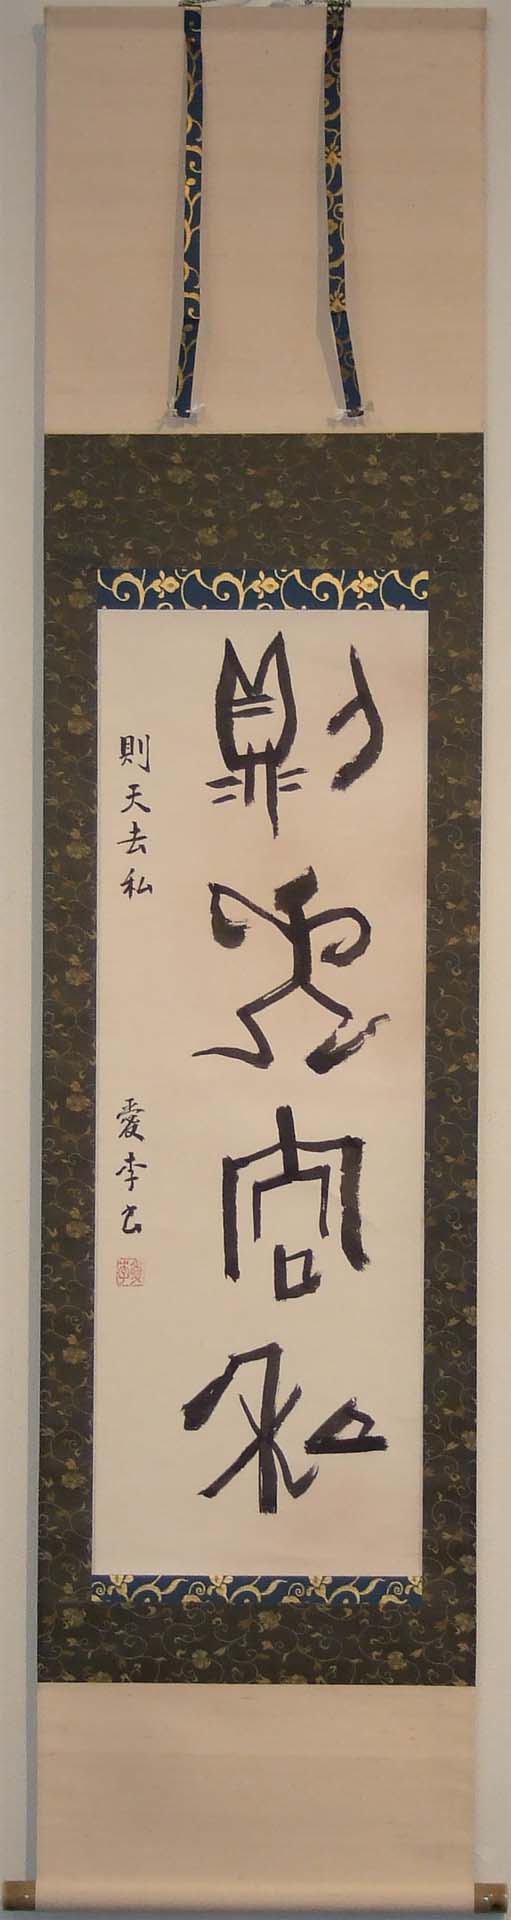 則天去私
則天去私
愛李書